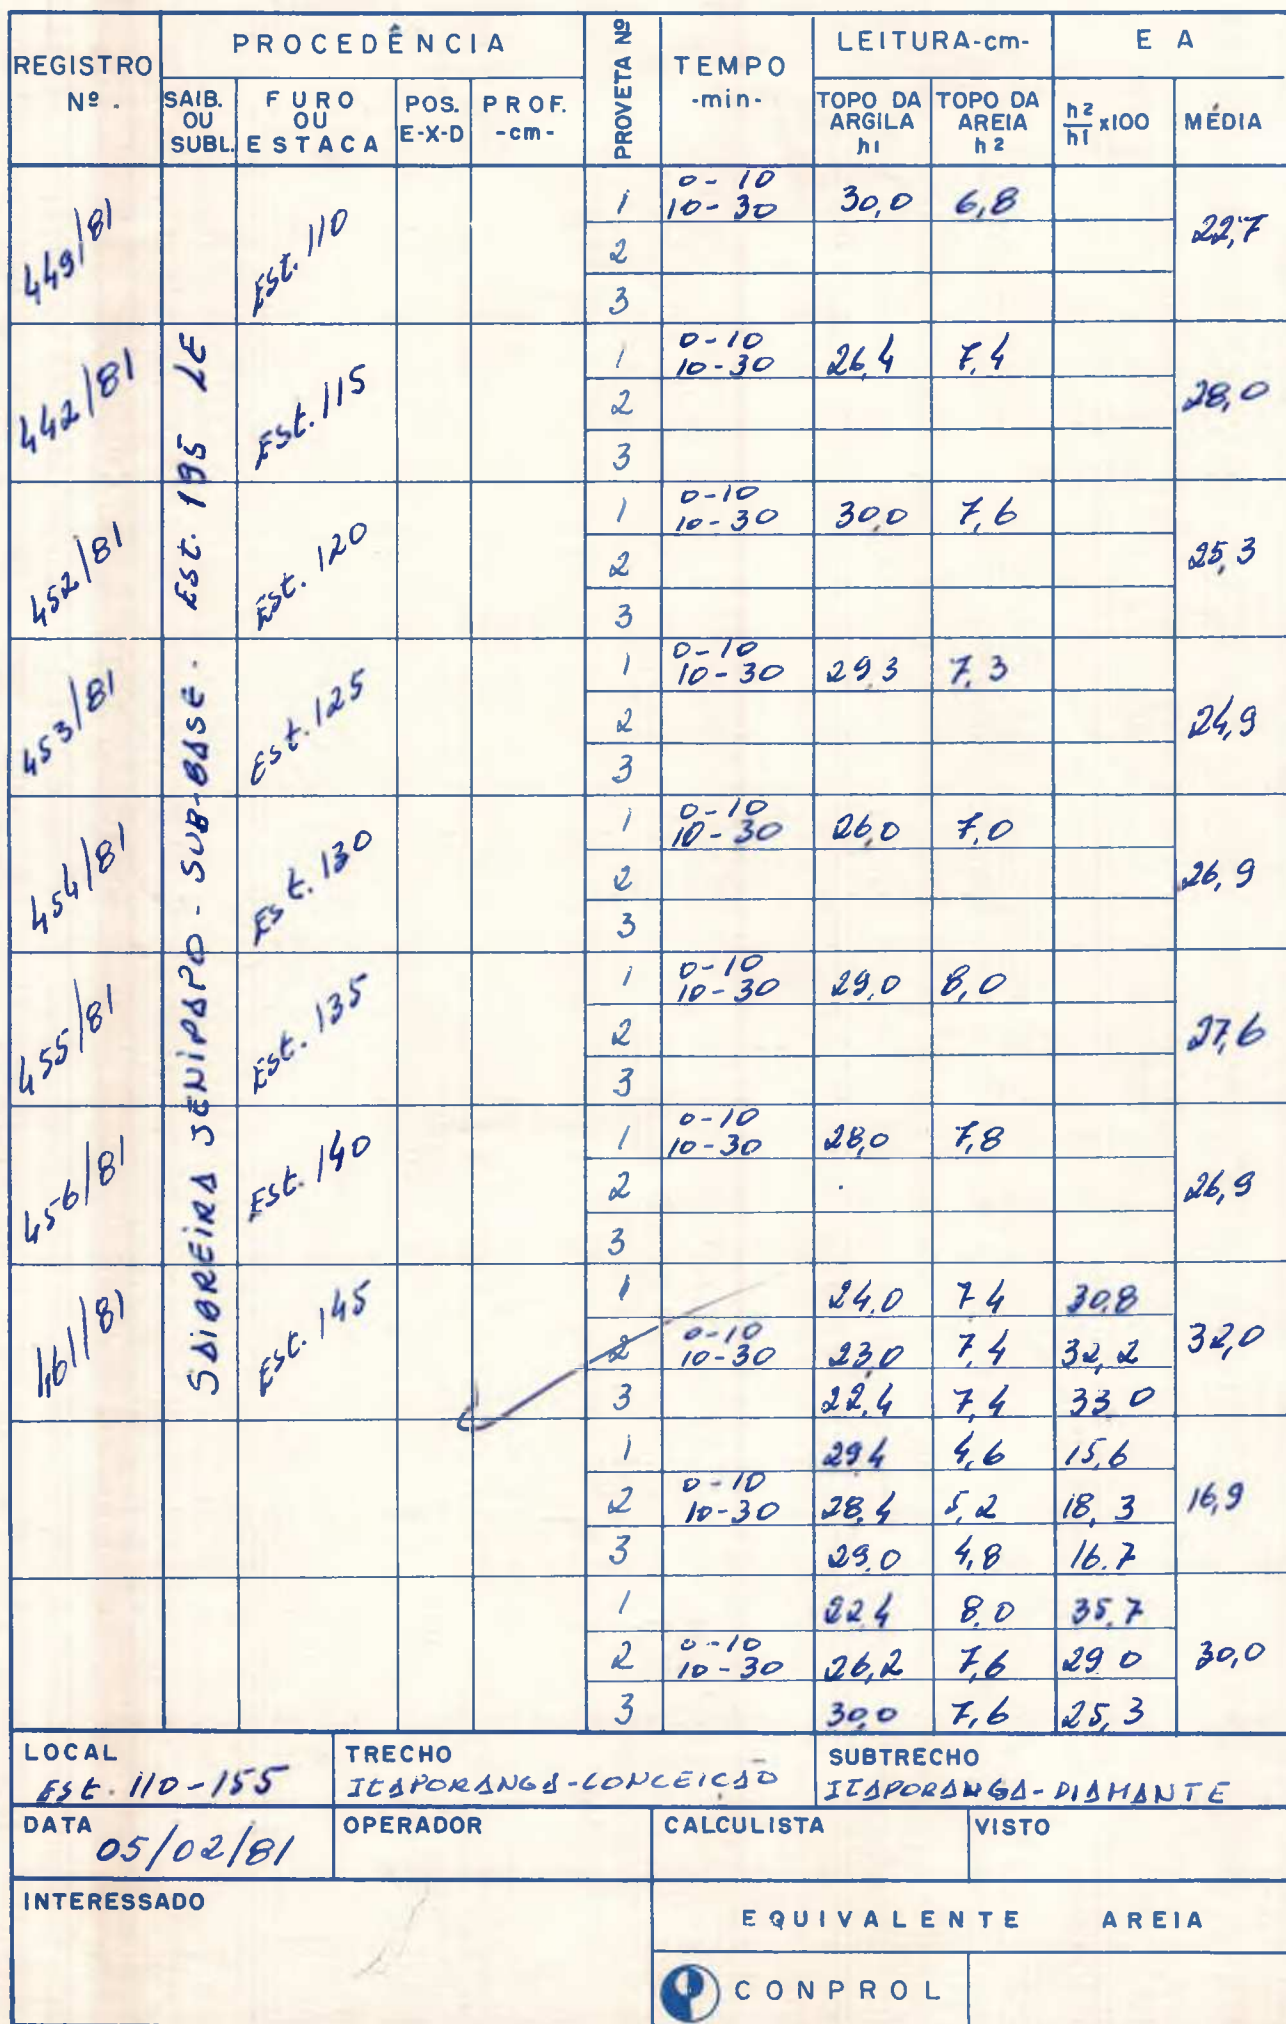 REGISTRO Nº .
PROCEDÊNCIA
SAIB. OU SUBL.
FURO OU ESTACA
POS. E-X-D
PROF. -cm-
PROVETA Nº
TEMPO -min-
LEITURA-cm-
TOPO DA ARGILA h1
TOPO DA AREIA h2
E A
h2/h1 x100
MÉDIA
SAIBREIRA JENIPAPO - SUB-BASE . Est. 195 LE
449/81 Est. 110
1 0-10 10-30 30,0 6,8 22,7
2
3
442/81 Est. 115
1 0-10 10-30 26,4 7,4 28,0
2
3
452/81 Est. 120
1 0-10 10-30 30,0 7,6 25,3
2
3
453/81 Est. 125
1 0-10 10-30 29,3 7,3 24,9
2
3
454/81 Est. 130
1 0-10 10-30 26,0 7,0 26,9
2
3
455/81 Est. 135
1 0-10 10-30 29,0 8,0 27,6
2
3
456/81 Est. 140
1 0-10 10-30 28,0 7,8 26,9
2
3
461/81 Est. 145
1 24,0 7,4 30,8
2 0-10 10-30 23,0 7,4 32,2 32,0
3 22,4 7,4 33,0
1 29,4 4,6 15,6
2 0-10 10-30 28,4 5,2 18,3 16,9
3 29,0 4,8 16.7
1 22,4 8,0 35,7
2 0-10 10-30 26,2 7,6 29,0 30,0
3 30,0 7,6 25,3
LOCAL
Est. 110-155
TRECHO
ITAPORANGA-CONCEICAO
SUBTRECHO
ITAPORANGA-DIAMANTE
DATA
05/02/81
OPERADOR
CALCULISTA
VISTO
INTERESSADO
EQUIVALENTE AREIA
CONPROL